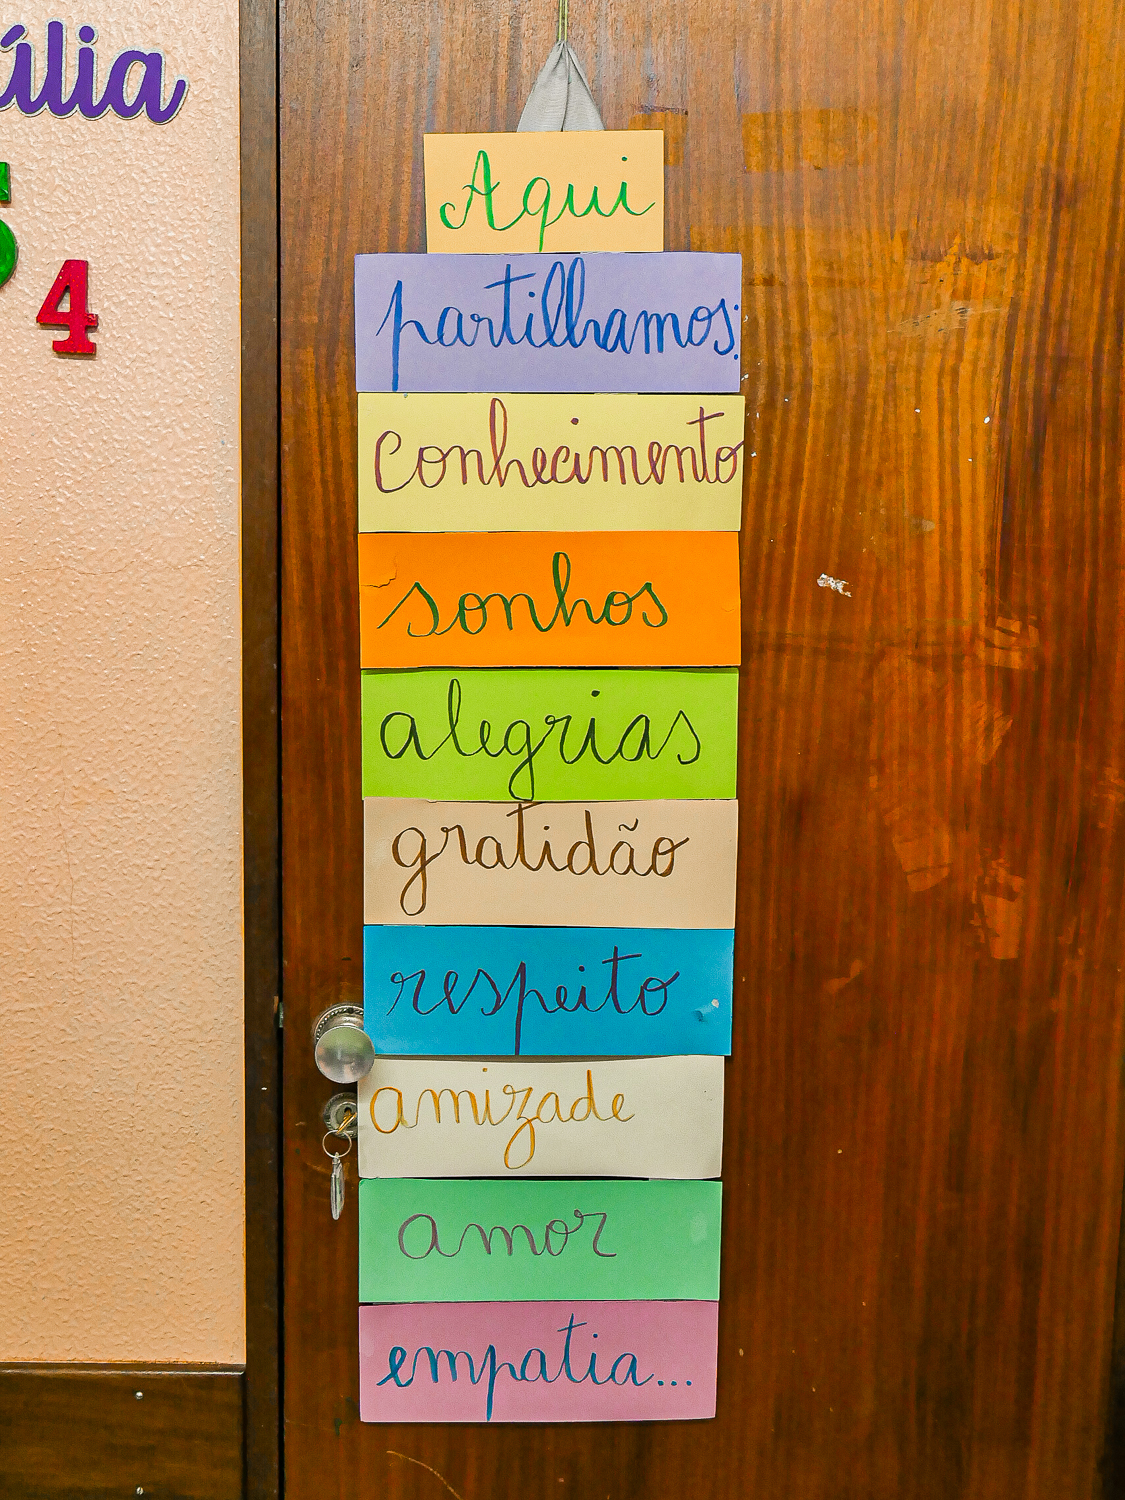 úlia
5
4
Aqui
partilhamos:
Conhecimento
sonhos
alegrias
gratidão
respeito
amizade
amor
empatia...